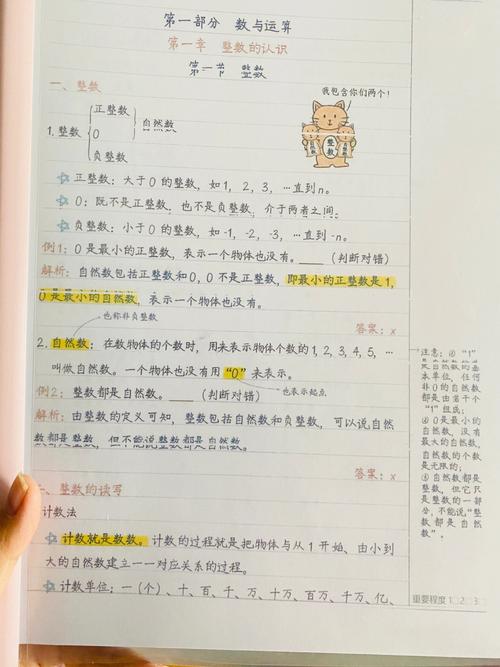 第一部分 数与运算
第一章 整数的认识
第一节 整数
一、整数
我包含你们两个！
正整数
1.整数 0 自然数
负整数
整数
正整数：大于0的整数，如1，2，3，…直到n。
0：既不是正整数，也不是负整数，介于两者之间；
负整数：小于0的整数，如-1，-2，-3，…直到-n。
例1：0是最小的正整数，表示一个物体也没有。____（判断对错）
解析：自然数包括正整数和0，0不是正整数，即最小的正整数是1，
0是最小的自然数，表示一个物体也没有。
答案：x
也称非负整数
2.自然数：在数物体的个数时，用来表示物体个数的1，2，3，4，5，…
叫做自然数。一个物体也没有用“0”来表示。
也表示起点
例2：整数都是自然数。____（判断对错）
解析：由整数的定义可知，整数包括自然数和负整数，可以说自然
数都是整数，但不能说整数都是自然数。
答案：x
、整数的读写
计数法
计数就是数数。计数的过程就是把物体与从1开始、由小到
大的自然数建立一一对应关系的过程。
计数单位：一（个）、十、百、千、万、十万、百万、千万、亿、
注意：①“1”
是自然数的基
本单位，任何
非0的自然数
都是由若干个
“1”组成；
②0是最小的
自然数，没有
最大的自然数，
自然数的个数
是无限的；
③自然数都是
整数，但它只
是整数的一部
分，不能说“整
数都是自然
数”。
重要程度 1 2 3